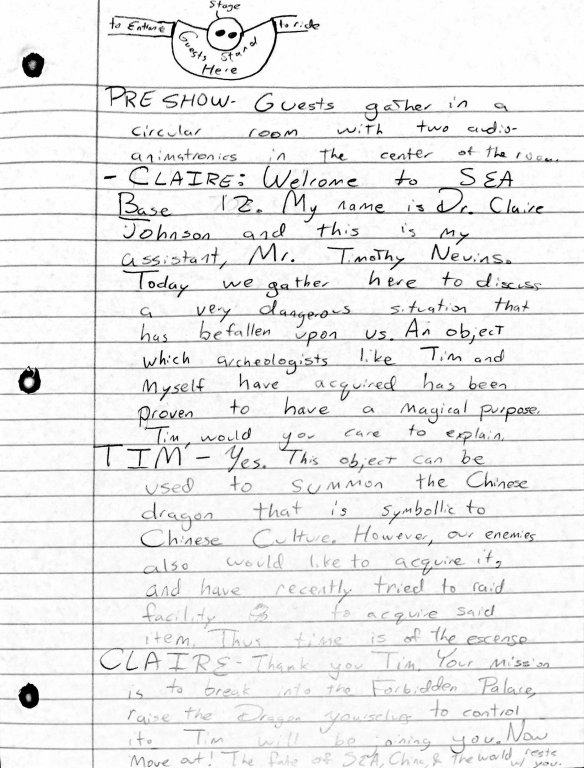 Stage
to Entrance
to ride
Guests Stand
Here
PRE SHOW- Guests gather in a
circular room with two audio-
animatronics in the center of the room.
- CLAIRE: Welcome to SEA
Base 12. My name is Dr. Claire
Johnson and this is my
assistant, Mr. Timothy Nevins.
Today we gather here to discuss
a very dangerous situation that
has befallen upon us. An object
which archeologists like Tim and
Myself have acquired has been
proven to have a magical purpose.
Tim, would you care to explain.
TIM - Yes. This object can be
used to summon the Chinese
dragon that is symbollic to
Chinese Culture. However, our enemies
also would like to acquire it,
and have recently tried to raid
facility to acquire said
item. Thus time is of the escense
CLAIRE- Thank you Tim. Your mission
is to break into the Forbidden Palace,
raise the Dragon to control
it. Tim will be joining you. Now
Move out! The fate of SEA, China, & the world rests
w/ you.